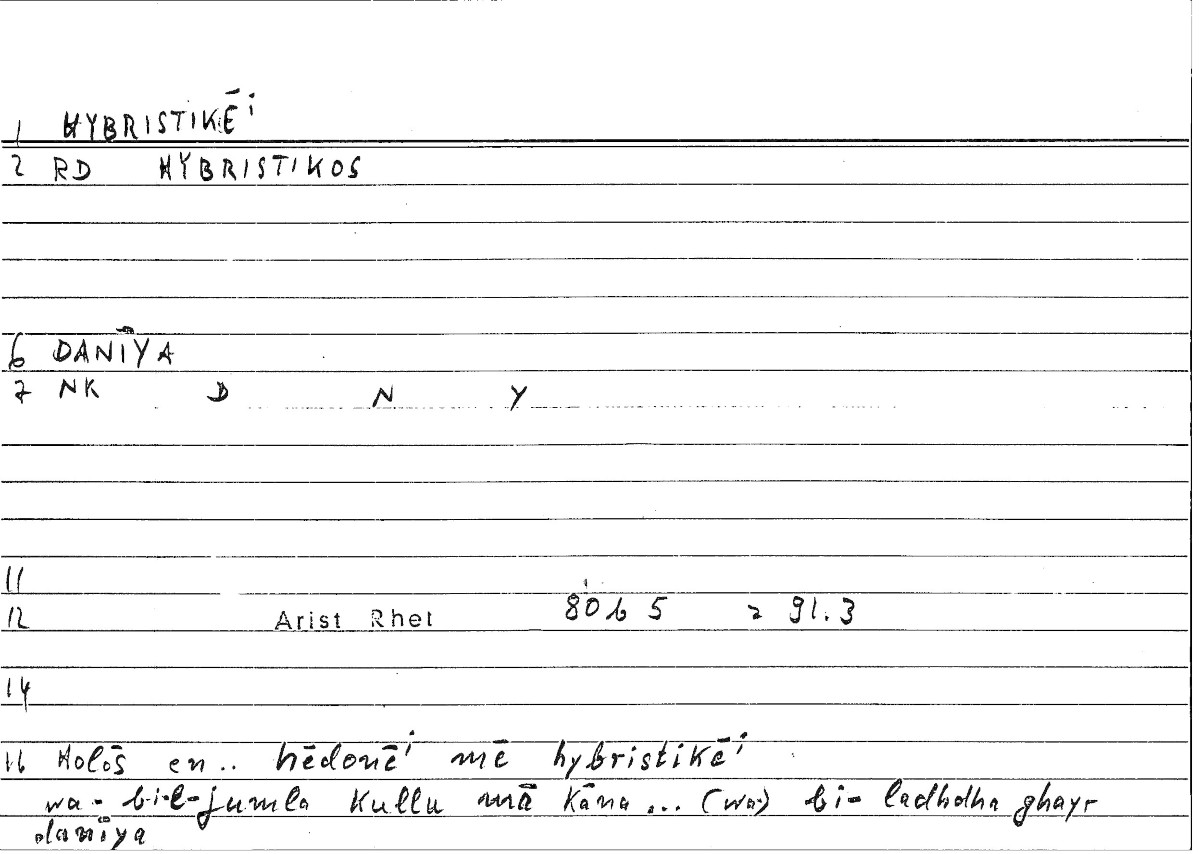 1 HYBRISTIKĒⁱ
2 RD HYBRISTIKOS
6 DANĪYA
7 NK D N Y
11
12 Arist Rhet 80b 5 = 91.3
14
16 Holōs en .. hēdonēⁱ mē hybristikēⁱ
wa-bi-l-jumla kullu mā kāna ... (wa-) bi-ladhdha ghayr
danīya